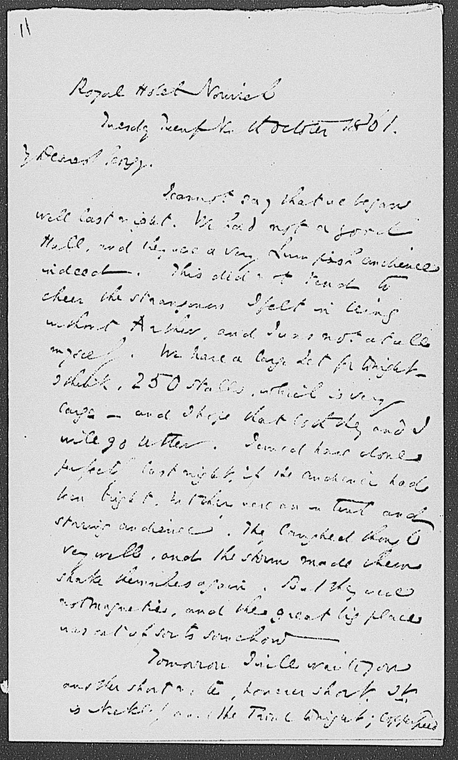 11
Royal Hotel Norwich
Tuesday Twenty Ninth October 1861.
My Dearest Georgy.
I cannot say that we began
well last night. We had not a good
Hall, and they were a very lumpish audience
indeed. This did not tend to
cheer the strangeness I felt in being
without Arthur, and I was not at all
myself. We have a large Let for tonight
I think, 250 stalls, which is very
large – and I hope that both they and I
will go better. I could have done
perfectly last night, if the audience had
been bright, but they were an intent and
staring audience. They laughed though
very well, and the storm made them
shake themselves again. But they were
not magnetic, and the great big place
was out of sorts somehow
Tomorrow I will write you
another short note, however short. It
is Nickleby and the Trial tonight; Copperfield